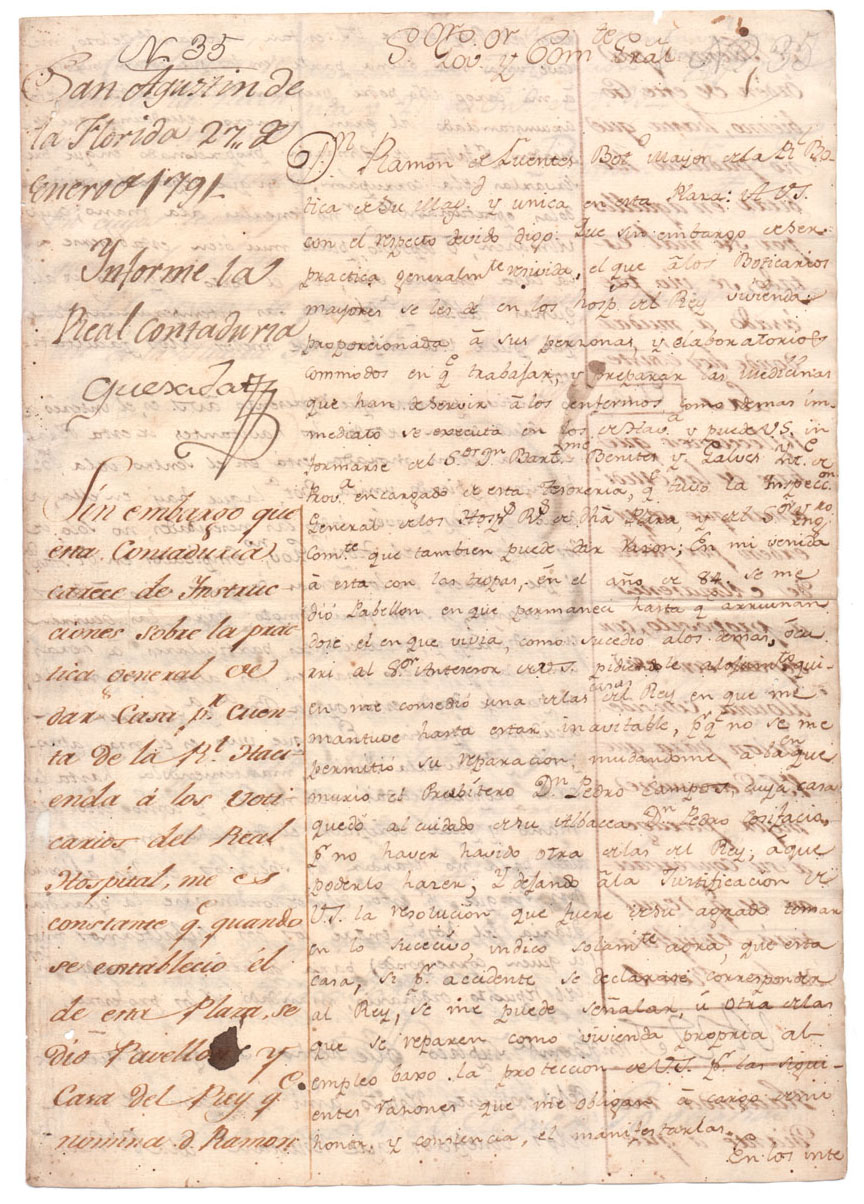 N. 35
San Agustin de
la Florida 27,, de
Enero de 1791
Ynforme la
Real Contaduria
Quesada
Sin embargo que
esta Contaduria
carece de Instruc
ciones sobre la prac
tica general de
dar Casa pr. Cuen
ta de la Rl. Haci
enda á los Voti
carios del Real
Hospital, me es
constante qe. quando
se establecio él
de esta Plaza, se
dió Pavellon y
Casa del Rey qe.
nomina d. Ramon
Sor. Govor. y Comte. Gral
N 35
Dn. Ramon de Fuentes Boto. Mayor de la Rl. Bo
tica de su Magd. y unica en esta Plaza: A V.S.
con el respecto devido digo: Que sin embargo de ser
practica generalmte. seguida, el que á los Boticarios
mayores se les dé en los hosps. del Rey vivienda
proporcionada á sus personas, y elaboratorios
commodos en qe. trabajar, y preparar las medicinas
que han de servir á los enfermos como demas im
mediato se executa en los de Hava. y puede V.S. in
formarse del Sor. Dn. Bartme. Benites y Galves
Prova. encargado de esta Tesoreria, qe. tubo la Inspeccion
General de los Hosps. Rs. de dha Plaza, y del Sor. Yngo.
Comte. que tambien puede dar razon; En mi venida
á esta con las tropas, en el año de 84 se me
dió Pabellon en que permaneci hasta qe. arruinan
dose el en que vivia, como sucedió a los demas, ocu
rri al Sor. Anterior de V.S. pidiendole alojamto. qui
en me consedió una de las casas del Rey en que me
mantuve hasta estar inavitable, pr. qe. no se me
permitió su reparacion; mudandome á la en que
murio el Presbitero Dn. Pedro Campos, cuya casa
quedó al cuidado de su Albacea Dn. Pedro Cosifacio,
pr. no haver havido otra de las del Rey; á que
poderlo hazer; Y dejando á la Justificacion de
V.S. la resolucion que fuere de su agrado tomar
en lo succecivo indico solamte. aora, que esta
casa, si pr. accidente se declarase corresponder
al Rey, se me puede señalar, ú otra de las
que se reparen como vivienda propria al
empleo baxo la proteccion de V.S. pr. las sigui-
entes razones que me obligan á cargo de mi
honor, y consiencia, el manifestarlas.
En los inte